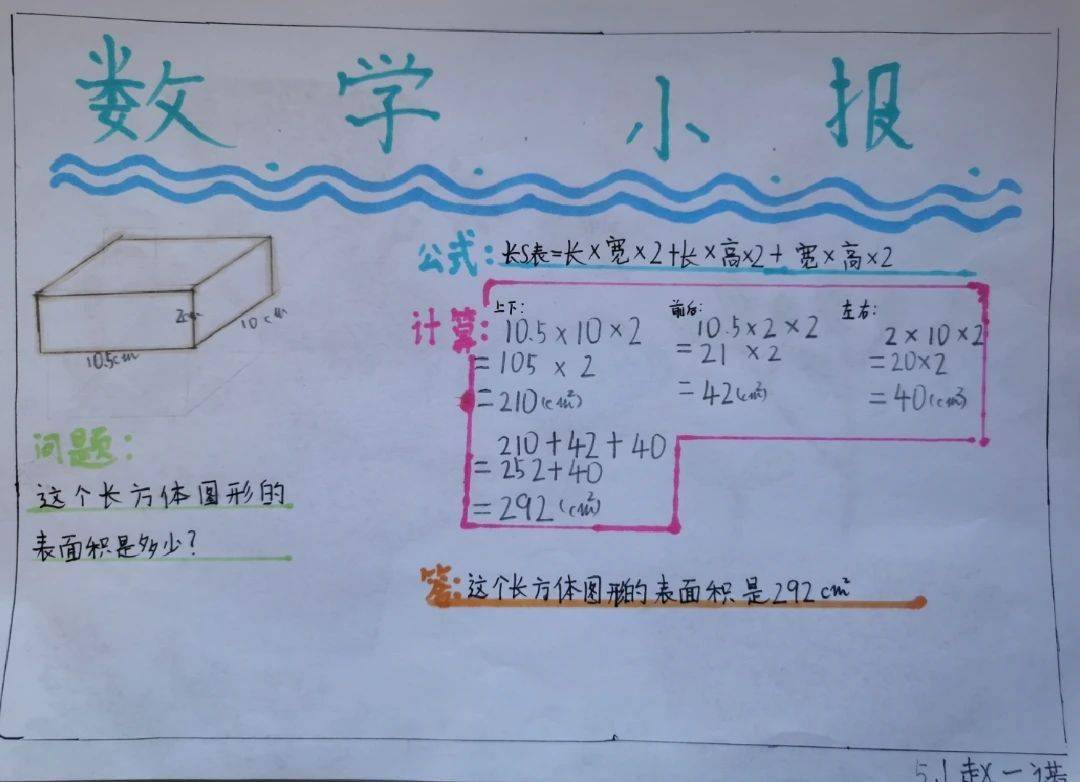 数学小报
2cm
10cm
10.5cm
问题:
这个长方体图形的
表面积是多少?
公式: 长S表=长×宽×2+长×高×2+宽×高×2
计算:
上下:
10.5×10×2
=105×2
=210(cm²)
前后:
10.5×2×2
=21×2
=42(cm²)
左右:
2×10×2
=20×2
=40(cm²)
210+42+40
=252+40
=292(cm²)
答:这个长方体图形的表面积是292cm²
5.1赵一诺